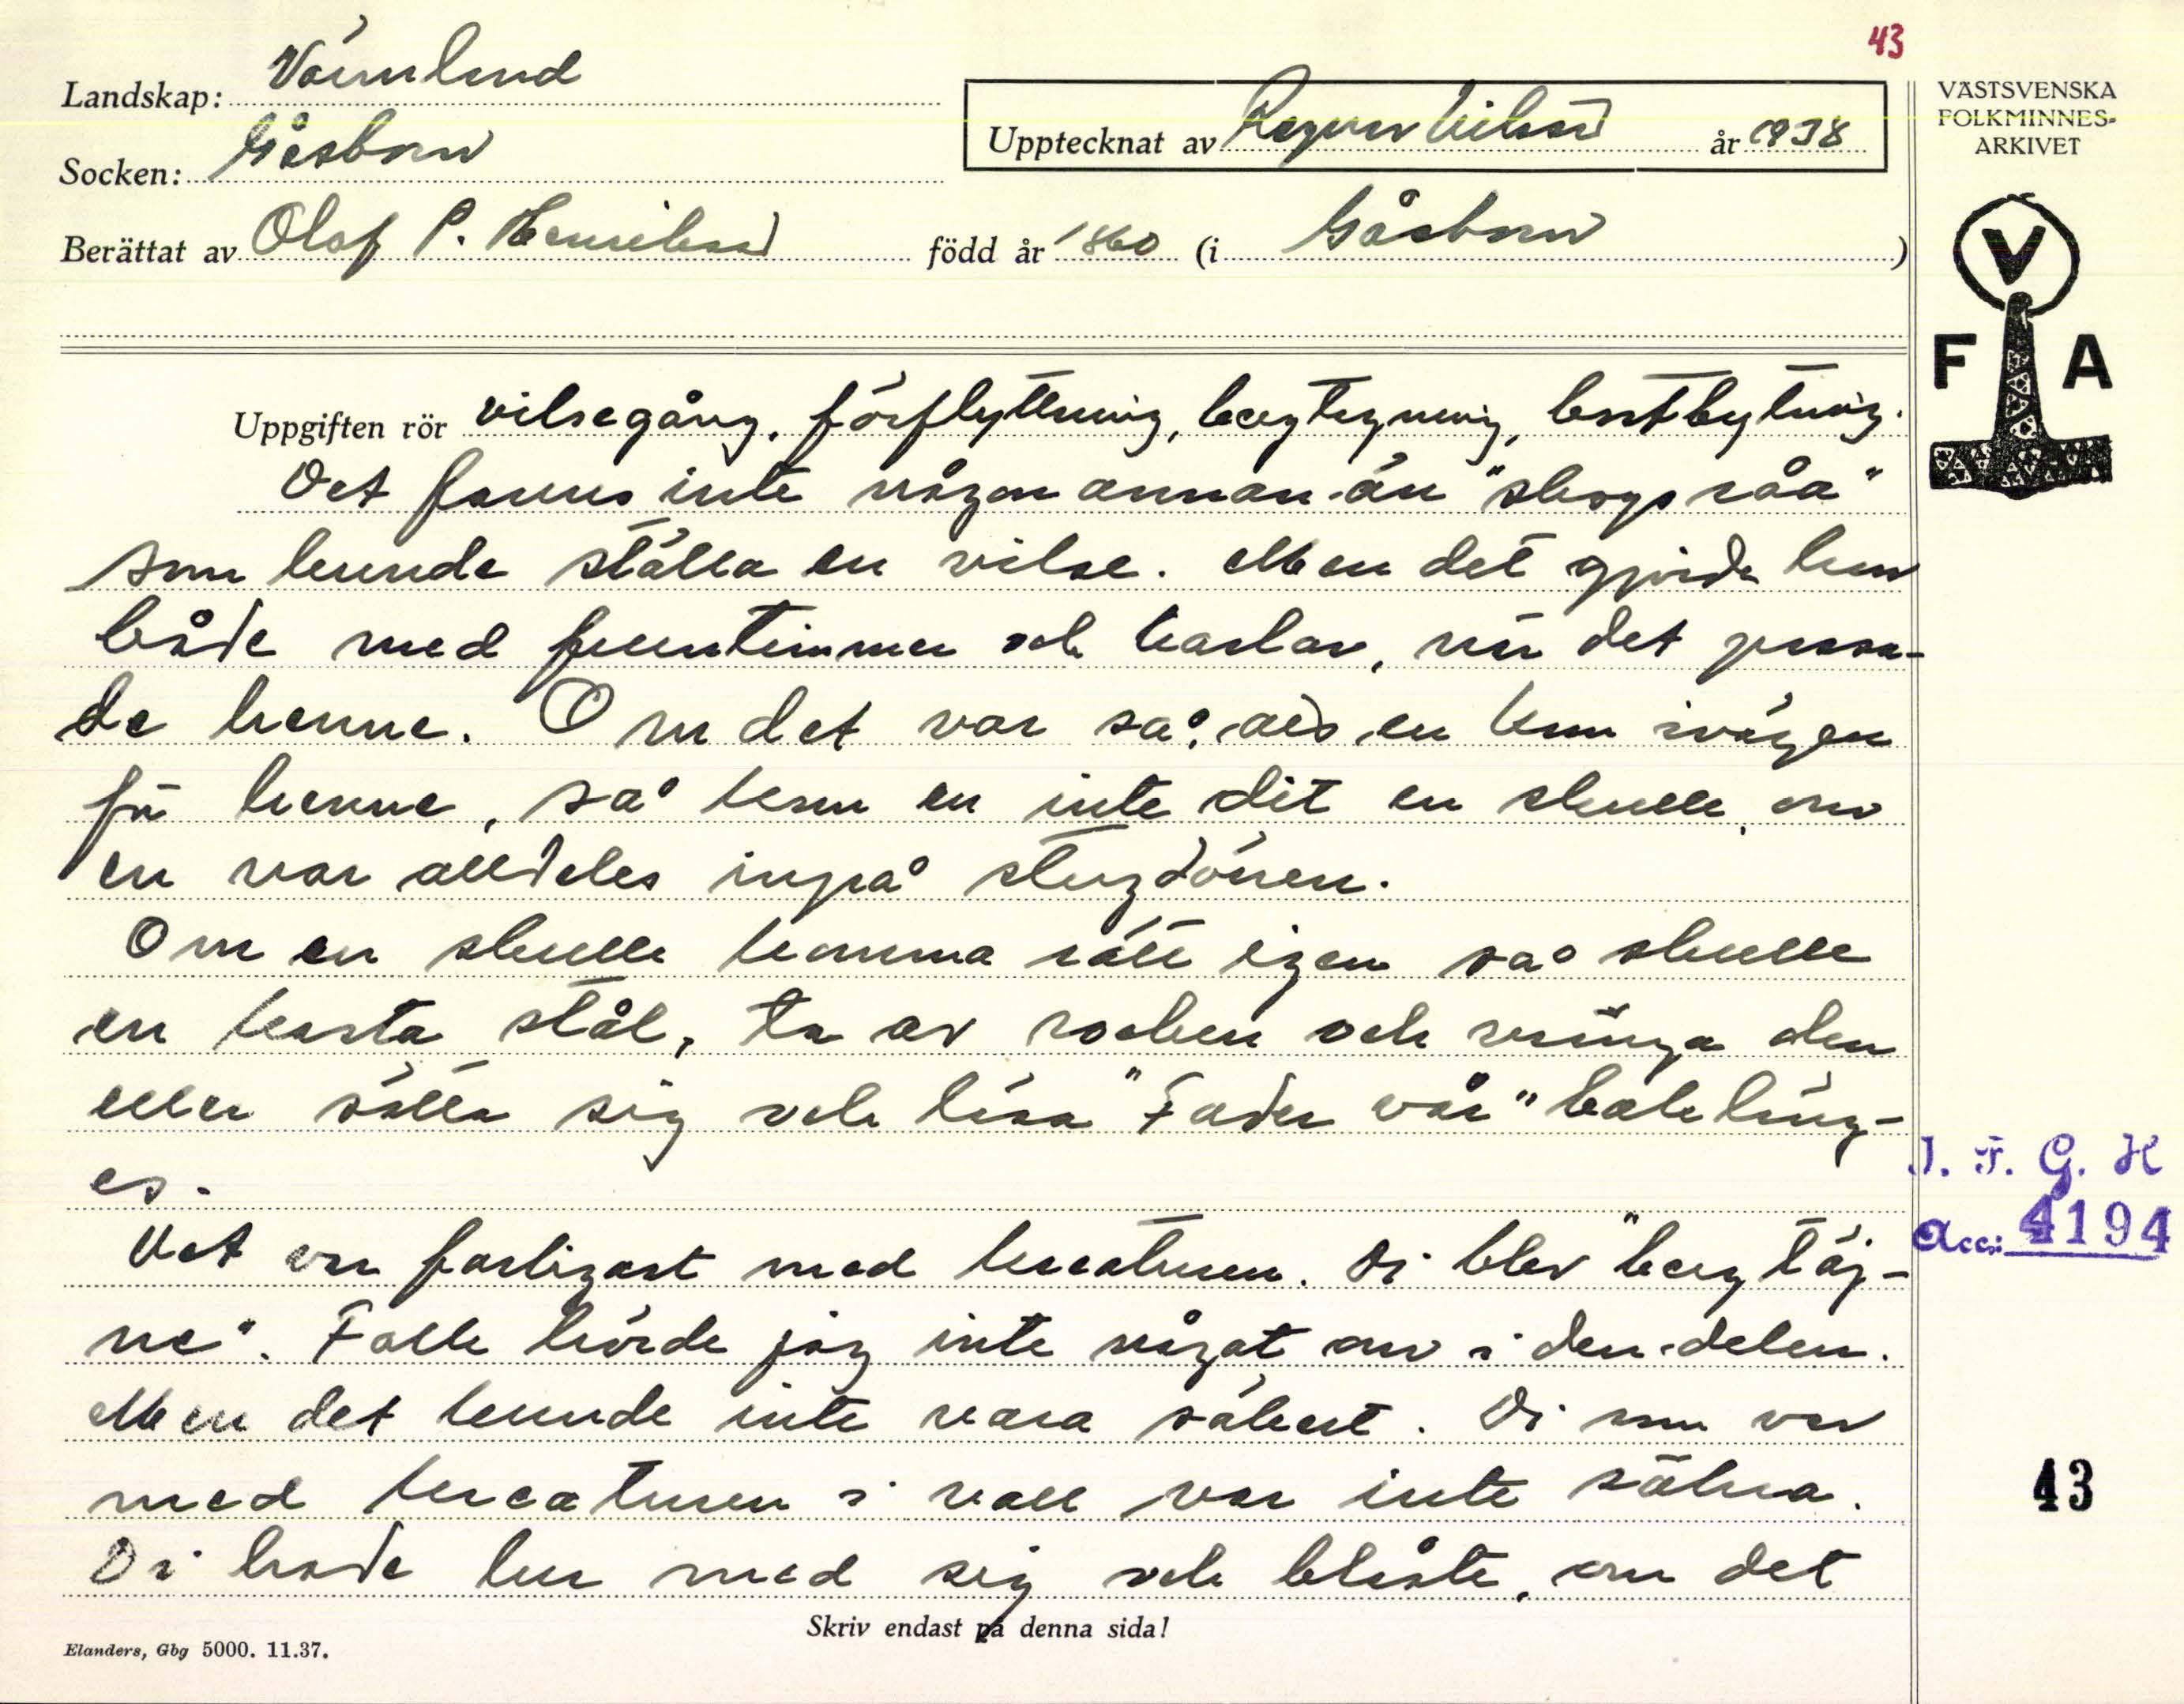 43
Landskap: Värmland
Socken: Gåsborn
Berättat av Olof P. Henrikssn född år 1860 (i Gåsborn)
Upptecknat av Ragnar Nilsson år 1938
VÄSTSVENSKA
FOLKMINNES-
ARKIVET
V
F A
Uppgiften rör vilsegång, förflyttning, bergtagning, bortbytning.
Det fanns inte någon annan än "skogsråa"
som kunde ställa en vilse. Men det gjorde hon
både med fruntimmer och karlar, när det passa-
de henne. Om det var så, att en kom ivägen
för henne, så kom en inte dit en skulle, om
en var alldeles inpå stugdören.
Om en skulle komma rätt igen så skulle
en kasta stål, ta av rocken och vränga den
eller sätta sig och läsa "Fader vår" bakläng-
es.
Det var farligast med kreaturen. Di blev "bergtäj-
ne". Folk hörde jag inte något om i den delen.
Men det kunde inte vara säkert. Di som var
med kreaturen i vall var inte säkra.
Di hade lur med sig och blåste, om det
I. F. G. H
Acc: 4194
43
Skriv endast på denna sida!
Elanders, Gbg 5000. 11.37.